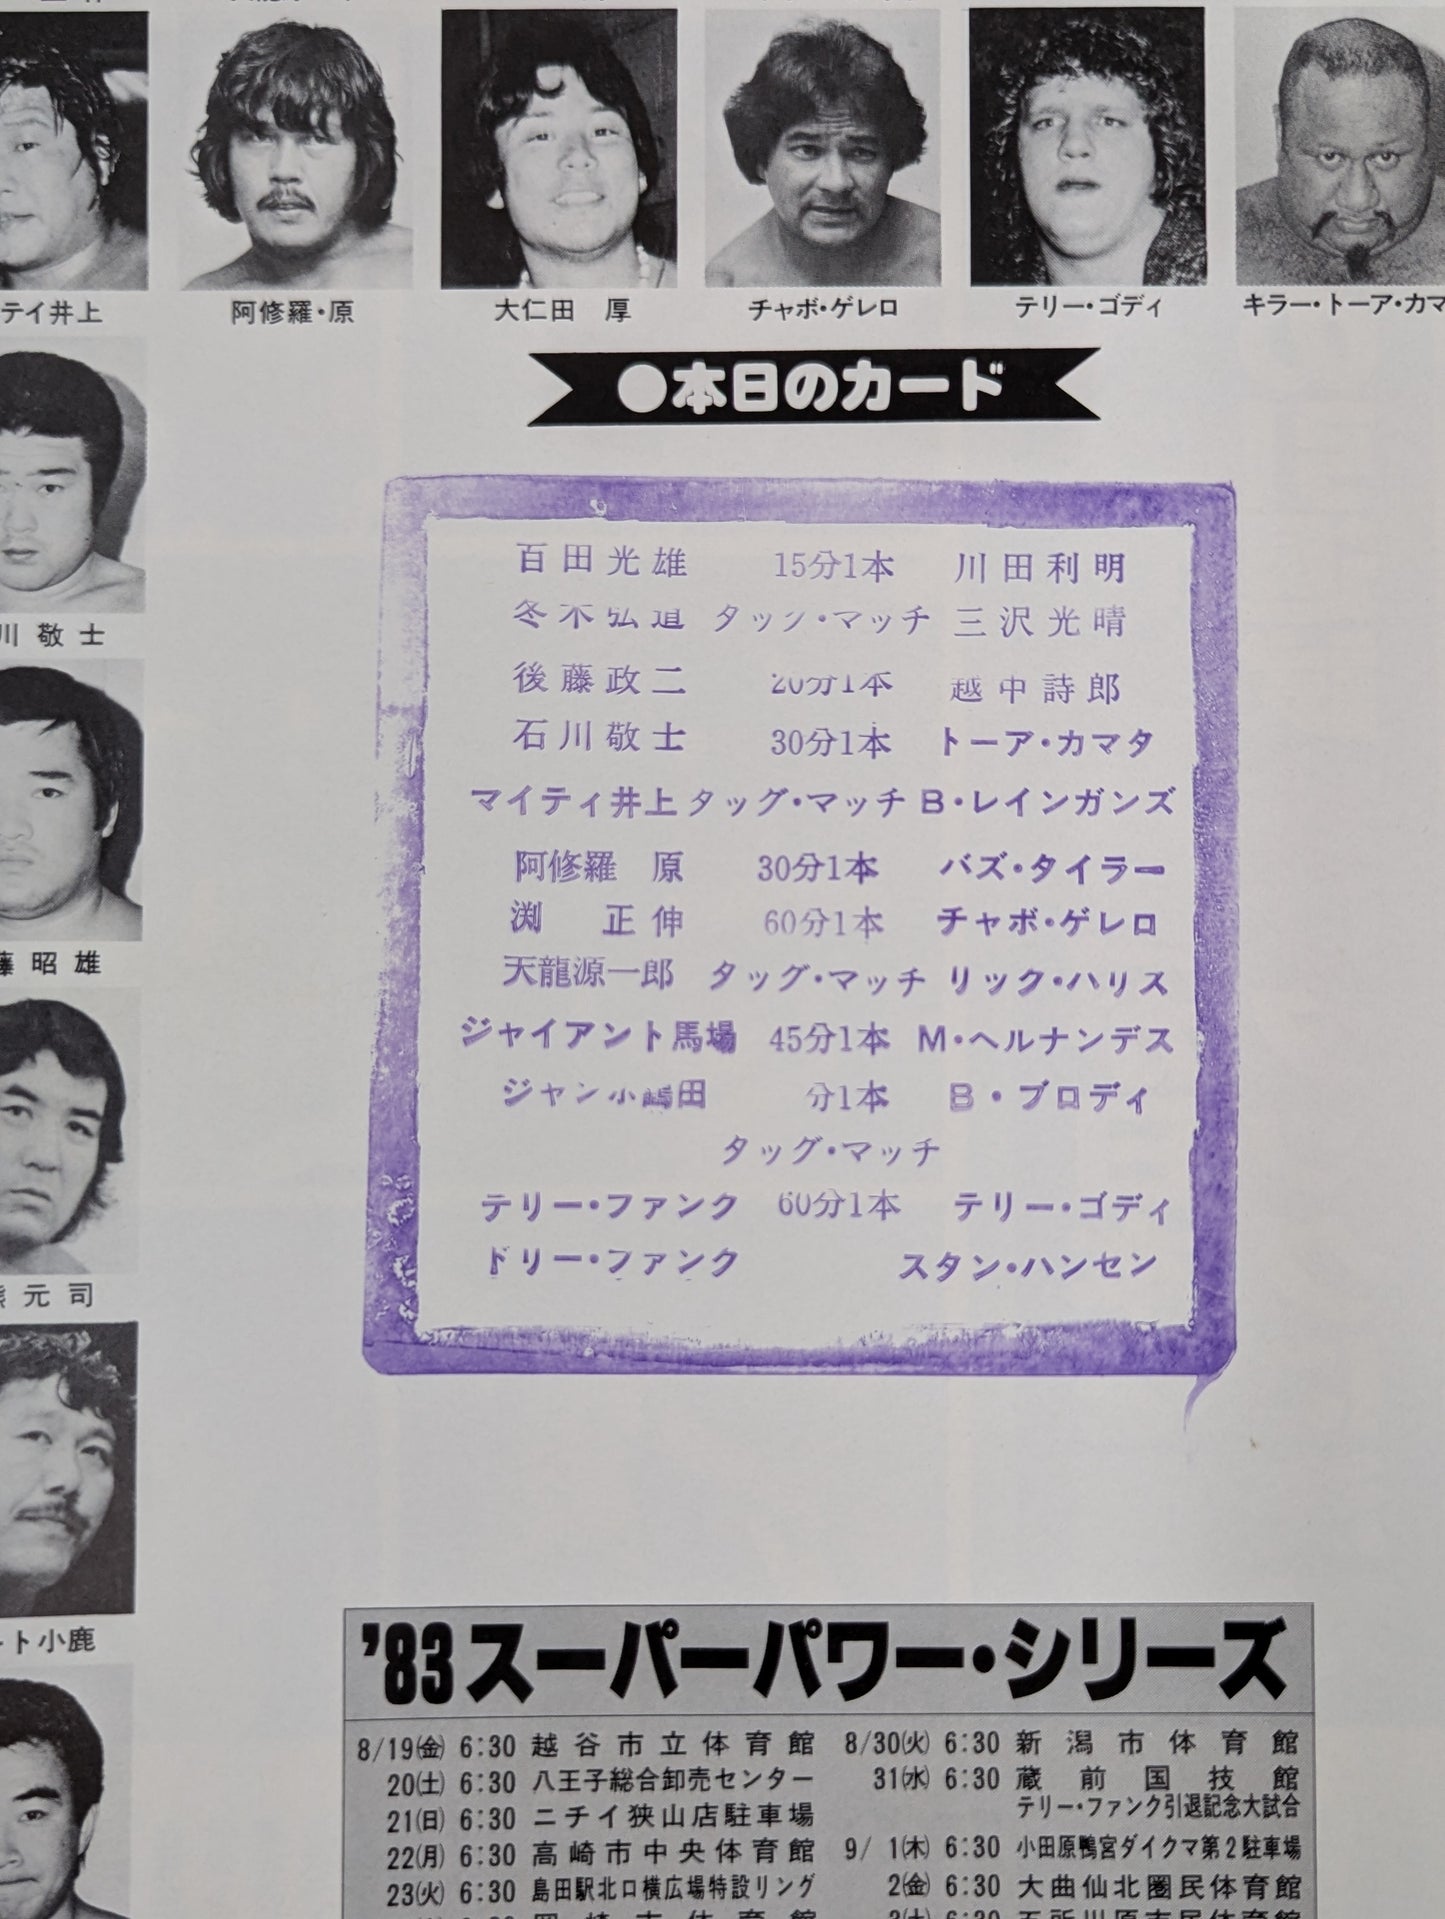 テイ井上
阿修羅・原
大仁田 厚
チャボ・ゲレロ
テリー・ゴディ
キラー・トーア・カマ
●本日のカード
川敬士
藤昭雄
熊元司
ト小鹿
百田光雄 15分1本 川田利明
冬木弘道 タッグ・マッチ 三沢光晴
後藤政二 20分1本 越中詩郎
石川敬士 30分1本 トーア・カマタ
マイティ井上 タッグ・マッチ B・レインガンズ
阿修羅 原 30分1本 バズ・タイラー
渕 正伸 60分1本 チャボ・ゲレロ
天龍源一郎 タッグ・マッチ リック・ハリス
ジャイアント馬場 45分1本 M・ヘルナンデス
ジャンボ鶴田 分1本 B・ブロディ
タッグ・マッチ
テリー・ファンク 60分1本 テリー・ゴディ
ドリー・ファンク スタン・ハンセン
'83スーパーパワー・シリーズ
8/19(金) 6:30 越谷市立体育館
20(土) 6:30 八王子総合卸売センター
21(日) 6:30 ニチイ狭山店駐車場
22(月) 6:30 高崎市中央体育館
23(火) 6:30 島田駅北口横広場特設リング
8/30(火) 6:30 新潟市体育館
31(水) 6:30 蔵前国技館
テリー・ファンク引退記念大試合
9/ 1(木) 6:30 小田原鴨宮ダイクマ第2駐車場
2(金) 6:30 大曲仙北圏民体育館